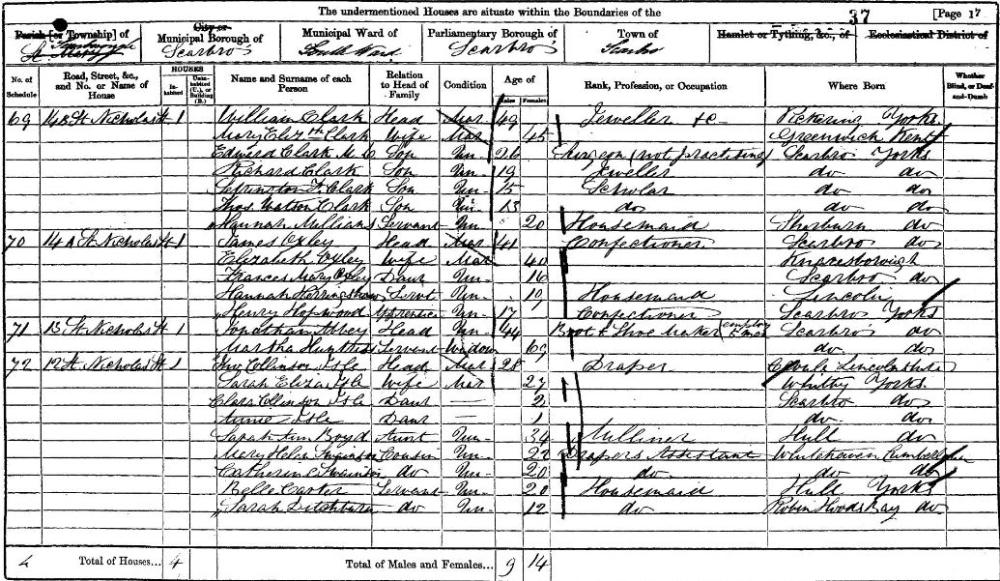 The undermentioned Houses are situate within the Boundaries of the
37 [Page 17
Parish [or Township] of City or Municipal Borough of Municipal Ward of Parliamentary Borough of Town of Hamlet or Tything, &c., of Ecclesiastical District of
St. Mary Scarbro South Ward Scarbro Scarbro
No. of Schedule Road, Street, &c., and No. or Name of House HOUSES Inhabited Uninhabited (U.), or Building (B.) Name and Surname of each Person Relation to Head of Family Condition Age of Males Females Rank, Profession, or Occupation Where Born Whether Blind, or Deaf-and-Dumb
69 St Nicholas St 1 William Clark Head Mar 49 Jeweller &c Pickering Yorks
Mary Elizth Clark Wife Mar 45 Greenwich Kent
Edward Clark Son Un 26 Surgeon (not practising) Scarbro Yorks
Richard Clark Son Un 19 Jeweller do do
Clark Son Un 15 Scholar do do
Thos. Watson Clark Son Un 13 do do do
Hannah Millians Servant Un 20 Housemaid Sherburn do
70 14A St Nicholas St 1 James Oxley Head Mar 41 Confectioner Scarbro do
Elizabeth Oxley Wife Mar 40 Knaresborough
Frances Mary Oxley Daur Un 16 Scarbro do
Hannah Servt Un 19 Housemaid Lincoln
Henry Hopwood Apprentice Un 17 Confectioner Scarbro Yorks
71 13 St Nicholas St 1 Jonathan Head Un 44 Boot & Shoe Maker Scarbro do
Martha Servant Widow 69 do do
72 12 St Nicholas St 1 Collinson Isle Head Mar 28 Draper Lincolnshire
Sarah Eliza Isle Wife Mar 27 Whitby Yorks
Clara Collinson Isle Daur — 2 Scarbro do
Annie Isle Daur — 1 do do
Sarah Ann Boyd Aunt Un 34 Milliner Hull do
Mary Helen Swainson Cousin Un 22 Drapers Assistant Whitehaven Cumberland
Catherine Swainson do Un 20 do do do
Belle Carter Servant Un 20 Housemaid Hull Yorks
Sarah do Un 12 do Robin Hoods Bay do
4 Total of Houses... 4 Total of Males and Females... 9 14